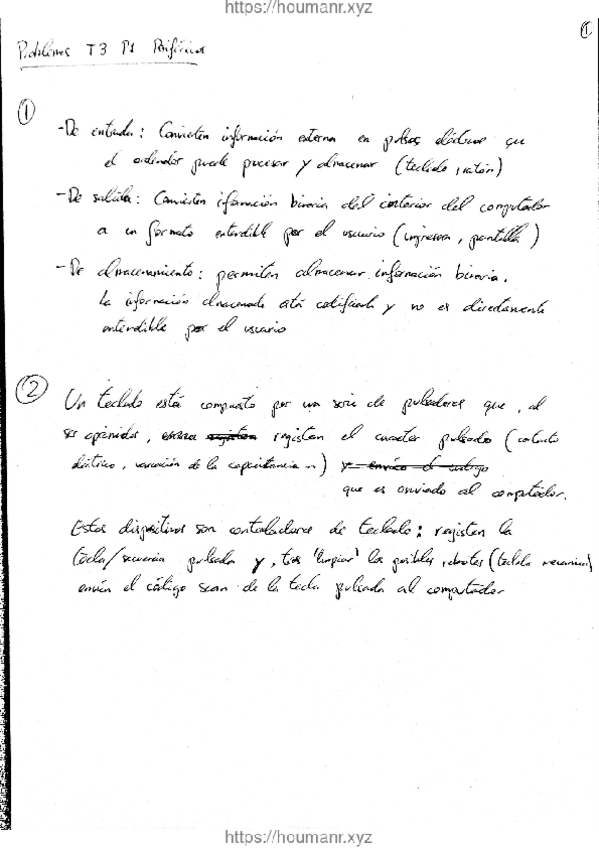 https://houmanr.xyz
1
Problemas T3 P1 Periféricos
1
-De entrada: Convierten información externa en pulsos eléctricos que
el ordenador puede procesar y almacenar (teclado, ratón)
-De salida: Convierten información binaria del interior del computador
a un formato entendible por el usuario (impresora, pantalla)
-De almacenamiento: permiten almacenar información binaria.
La información almacenada está codificada y no es directamente
entendible por el usuario
2
Un teclado está compuesto por una serie de pulsadores que, al
ser oprimidos, registran el caracter pulsado (contacto
eléctrico, variación de la capacitancia) y envían el código
que es enviado al computador.
Estos dispositivos son controladores de teclado: registran la
tecla/secuencia pulsada y, tras 'limpiar' los posibles rebotes (teclado mecánico)
envían el código scan de la tecla pulsada al computador
https://houmanr.xyz